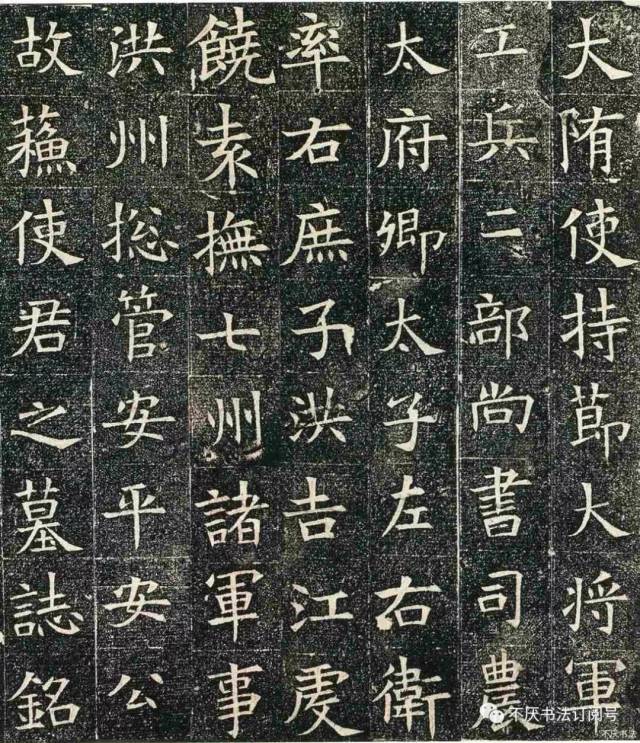 大隋使持莭大将軍
工兵二部尚書司農
太府卿太子左右衛
率右庶子洪吉江虔
饒袁撫七州諸軍事
洪州捴管安平安公
故蘓使君之墓誌銘
不厌书法订阅号
不厌书法